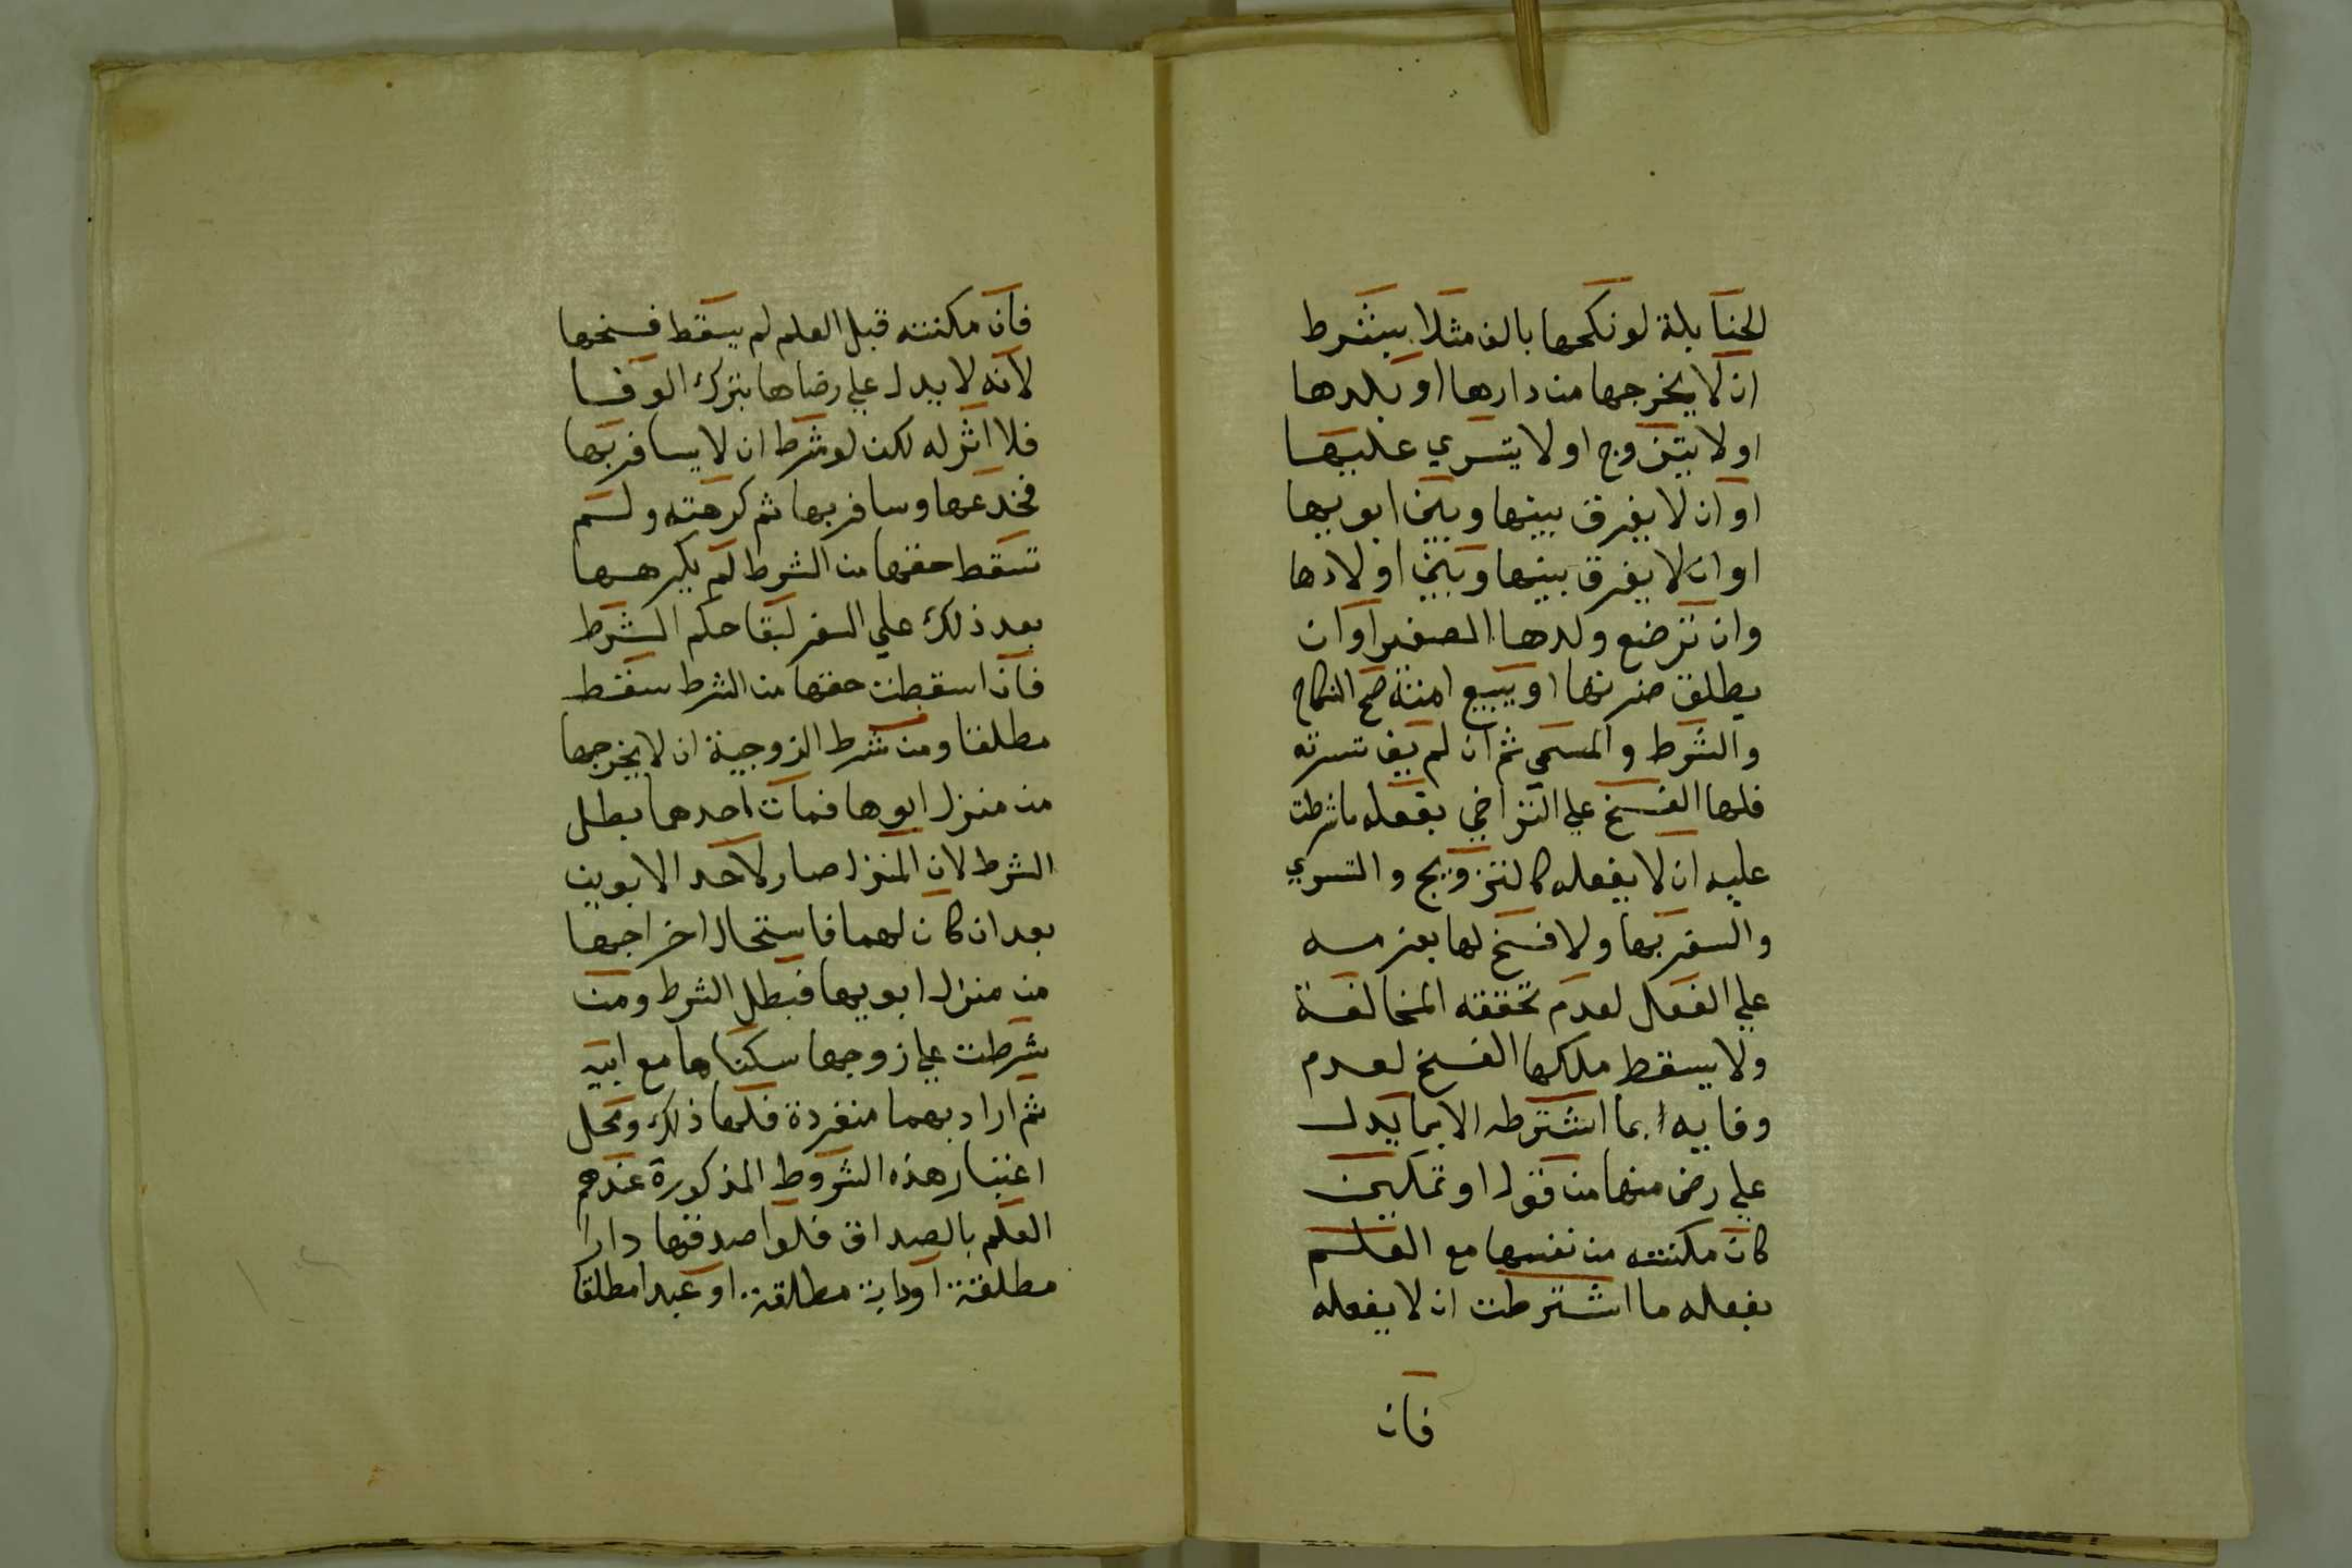 الحنابلة لو نكحها بالف مثلا بشرط
ان لا يخرجها من دارها او بلدها
او لا يتزوج او لا يتسري عليها
او ان لا يفرق بينها وبين ابويها
او ان لا يفرق بينها وبين اولادها
وان ترضع ولدها الصغير او ان
يطلق ضرتها او يبيع امته صح النكاح
والشرط والمسمى ثم ان لم يف بشرته
فلها الفسخ علي التراخي بفعله ما شرطت
عليه ان لا يفعله كالتزويج والتسري
والسفر بها ولا فسخ لها بعزمه
علي الفعل لعدم تحققه المخالفة
ولا يسقط ملكها الفسخ لعدم
وفايه بما اشترطه الا بما يدل
علي رضى منها من قول او تمكين
كان مكنته من نفسها مع العلم
بفعله ما اشترطت ان لا يفعله
فان
فان مكنته قبل العلم لم يسقط فسخها
لانه لا يدل علي رضاها بترك الوفا
فلا اثر له لكن لو شرط ان لا يسافر بها
فخدعها وسافر بها ثم كرهته ولم
تسقط حقها من الشرط لم يكرهها
بعد ذلك علي السفر لبقا حكم الشرط
فان اسقطت حقها من الشرط سقط
مطلقا ومن شرط الزوجية ان لا يخرجها
من منزل ابوها فمات احدهما بطل
الشرط لان المنزل صار لاحد الابوين
بعد ان كان لهما فاستحال اخراجها
من منزل ابويها فبطل الشرط ومن
شرطت علي زوجها سكناها مع ابيه
ثم اراد بهما منفردة فلها ذلك ومحل
اعتبار هذه الشروط المذكورة عندهم
العلم بالصداق فلو اصدقها دارا
مطلقة او دابة مطلقة او عبدا مطلقا